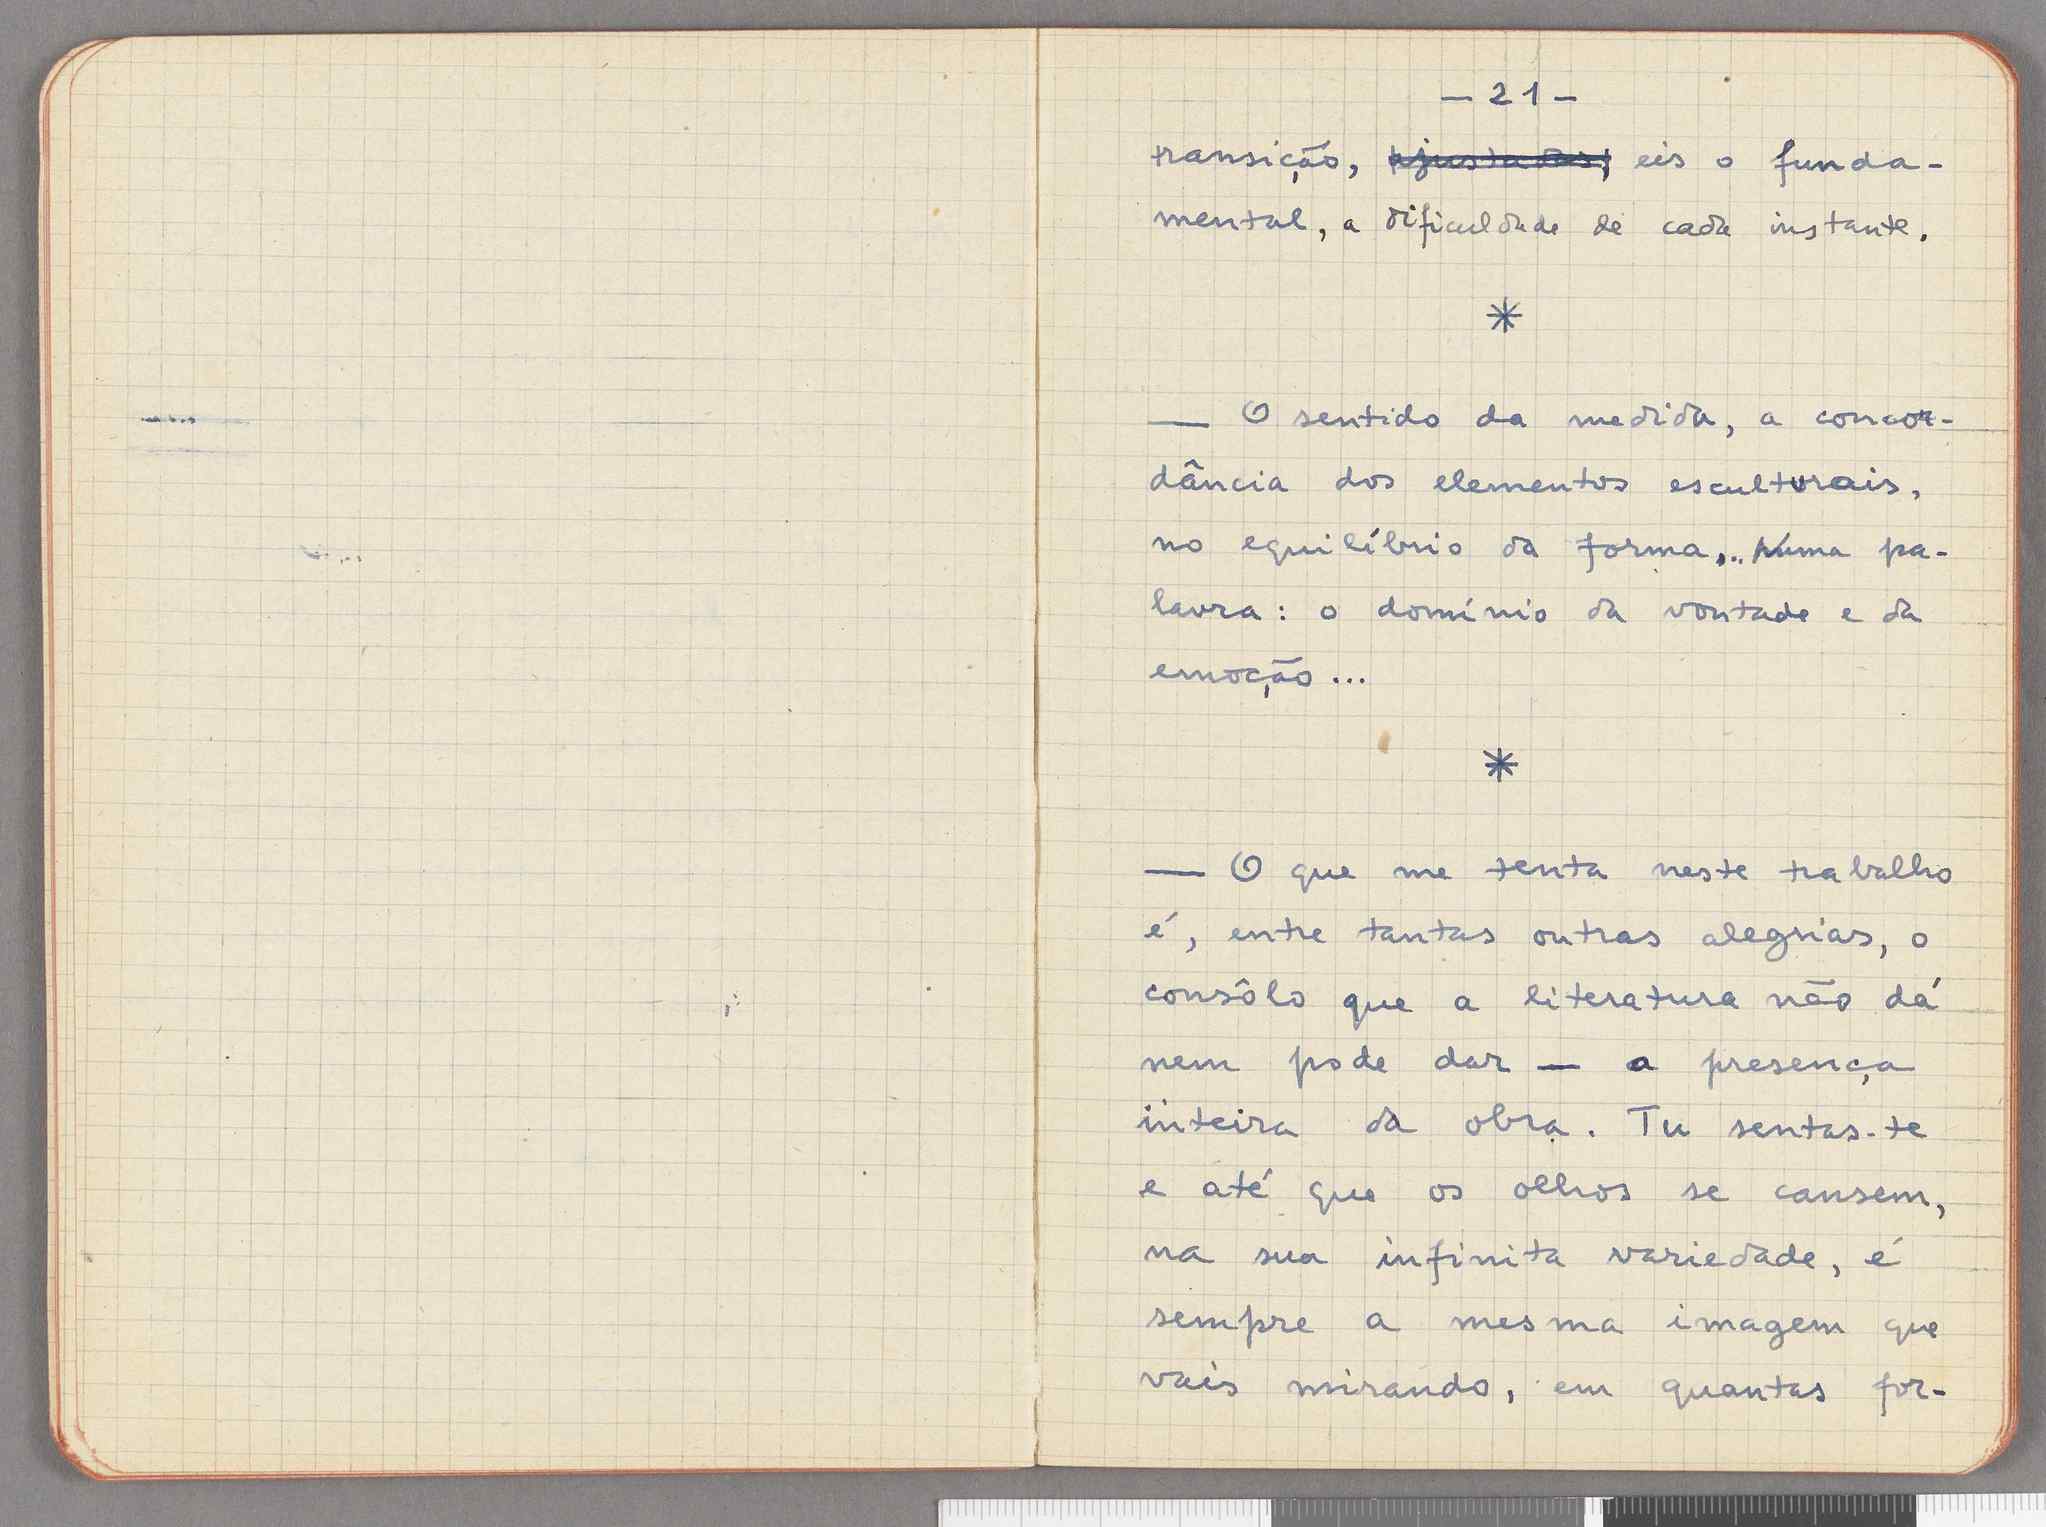 — 21 —
transição, ajustadas, eis o funda-
mental, a dificuldade de cada instante.
*
— O sentido da medida, a concor-
dância dos elementos esculturais,
no equilíbrio da forma,.. Numa pa-
lavra: o domínio da vontade e da
emoção...
*
— O que me tenta neste trabalho
é, entre tantas outras alegrias, o
consôlo que a literatura não dá
nem pode dar — a presença
inteira da obra. Tu sentas-te
e até que os olhos se cansem,
na sua infinita variedade, é
sempre a mesma imagem que
vais mirando, em quantas for-